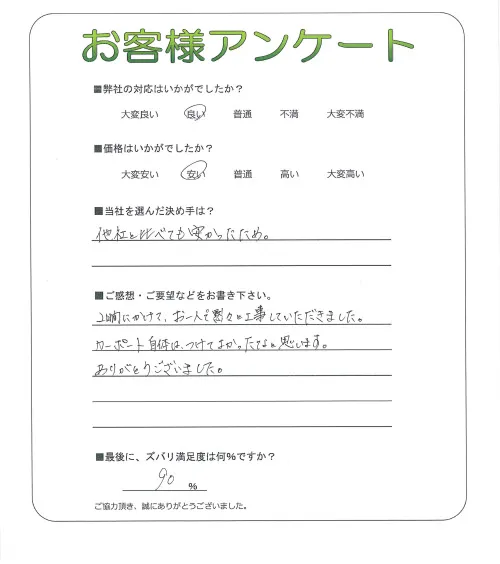 お客様アンケート
■弊社の対応はいかがでしたか？
大変良い 良い 普通 不満 大変不満
■価格はいかがでしたか？
大変安い 安い 普通 高い 大変高い
■当社を選んだ決め手は？
他社と比べても安かったため。
■ご感想・ご要望などをお書き下さい。
2日間にかけて、お一人で黙々と工事していただきました。
カーポート自体は、つけてよかったなと思います。
ありがとうございました。
■最後に、ズバリ満足度は何％ですか？
90 ％
ご協力頂き、誠にありがとうございました。